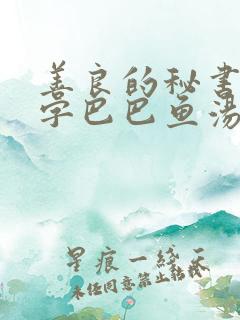 善良的秘书
学巴巴鱼汤
星痕一线天
未经同意禁止转载